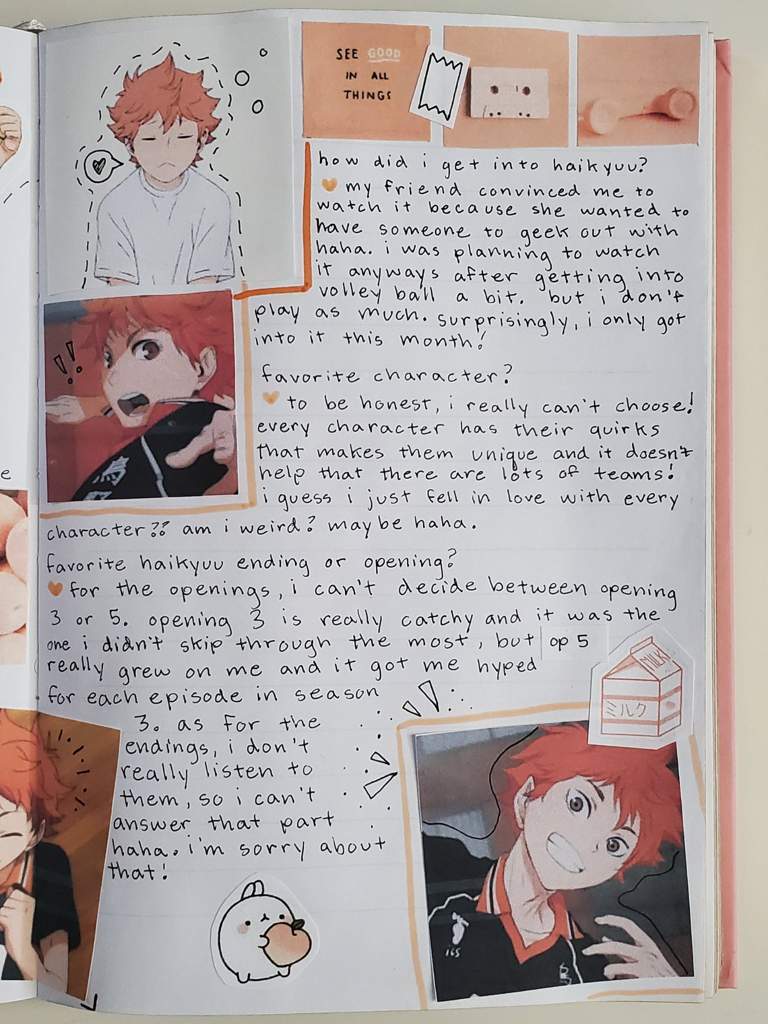 SEE GOOD
IN ALL
THINGS
how did i get into haikyuu?
my friend convinced me to
watch it because she wanted to
have someone to geek out with
haha. i was planning to watch
it anyways after getting into
volley ball a bit. but i don't
play as much. surprisingly, i only got
into it this month!
favorite character?
to be honest, i really can't choose!
every character has their quirks
that makes them unique and it doesn't
help that there are lots of teams!
i guess i just fell in love with every
character?? am i weird? maybe haha.
favorite haikyuu ending or opening?
for the openings, i can't decide between opening
3 or 5. opening 3 is really catchy and it was the
one i didn't skip through the most, but op 5
really grew on me and it got me hyped
for each episode in season
3. as for the
endings, i don't
really listen to
them, so i can't
answer that part
haha. i'm sorry about
that!
MILK
ミルク
烏
e